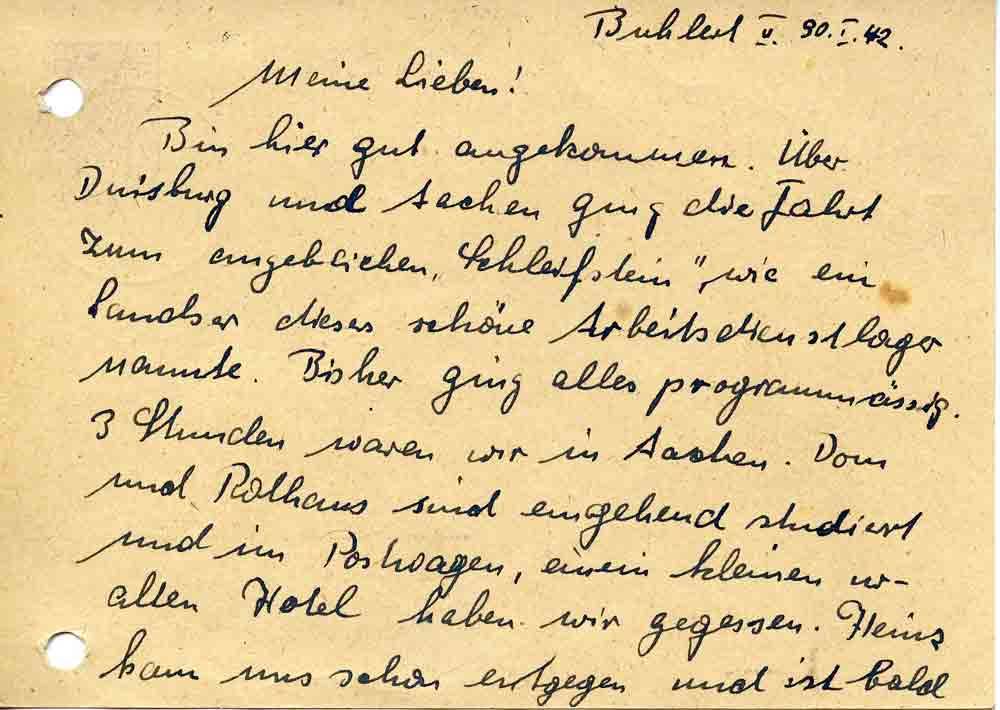 Buhlert ü. 30.I.42.
Meine Lieben!
Bin hier gut angekommen. Über
Duisburg und Aachen ging die Fahrt
zum angeblichen „Schleifstein", wie ein
Landser dieses schöne Arbeitsdienstlager
nannte. Bisher ging alles programmässig.
3 Stunden waren wir in Aachen. Dom
und Rathaus sind eingehend studiert
und im Postwagen, einem kleinen ur-
alten Hotel haben wir gegessen. Heinz
kam uns schon entgegen und ist bald